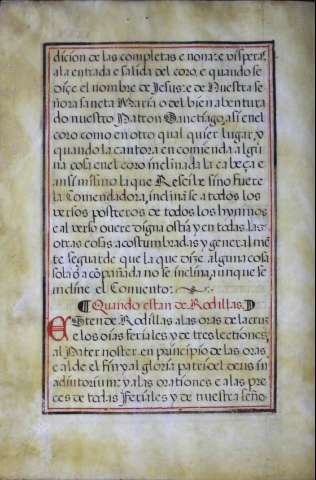 dicion de las completas e nona: e visperas.
a la entrada e salida del coro. e quando se
diçe el nombre de Jesus: e de Nuestra se
ñora sancta Maria o del bien abentura
do nuestro Patron Sanctiago, asi en el
coro como en otro qual quier lugar, y
quando la cantora encomienda algu
na cosa en el coro inclinada la cabeça e
ansi mismo la que Rescibe sino fuere
la Comendadora, inclinase a todos los
versos postreros de todos los hymnos
e al verso o uere digna ostia y en todas las
otras cosas acostumbradas y general mē
te se guarde que la que dize alguna cosa
sola o acōpañada no se inclina, aunque se
incline el Conuento:
Quando estan de Rodillas.
Esten de Rodillas a las oras de la cruz
e los dias feriales y de tres lectiones,
al Pater noster. en principio de las oras
e al de el fin y al gloria patri del deus in
adiutorium: y a las orationes e a las pre
ces de todas feriales y de nuestra seño